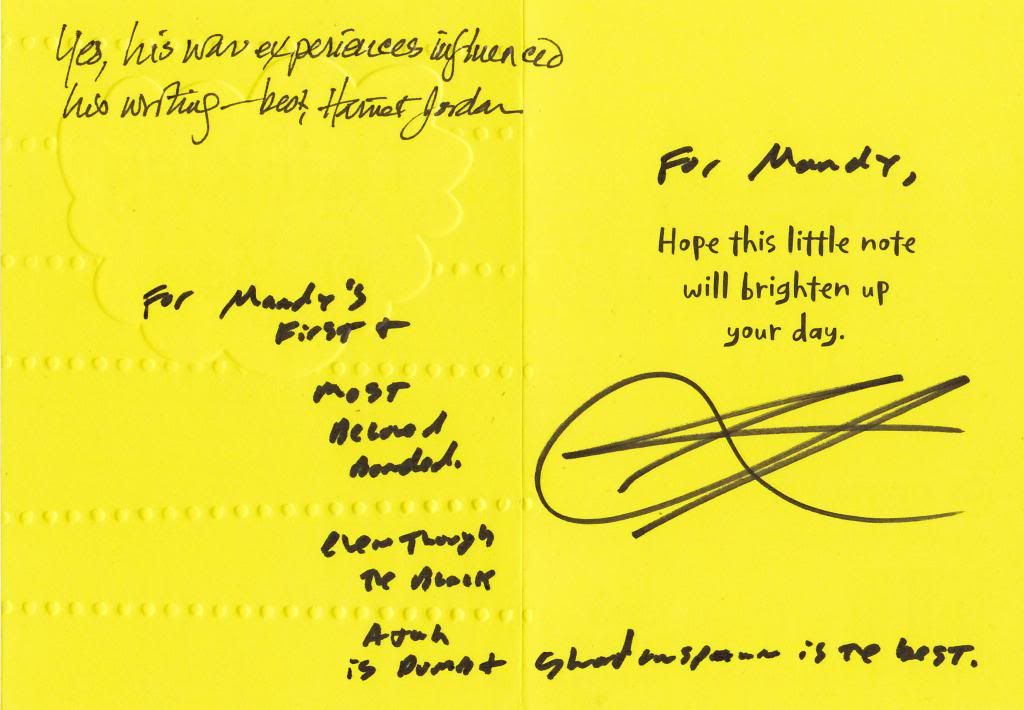 Yes, his war experiences influenced
his writing — best, Harriet Jordan
For Mandy's
First +
Most
Beloved
Bonded.
Even Though
The Black
Ajah
is Dumb +
For Mandy,
Hope this little note
will brighten up
your day.
Shadowspawn is The best.